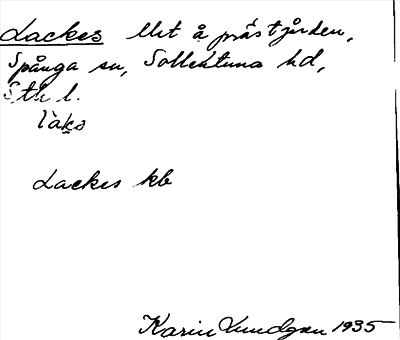 Lackes lht å prästgården,
Spånga sn, Sollentuna hd,
Sth l.
làks
Lackes kb
Karin Lundgren 1935